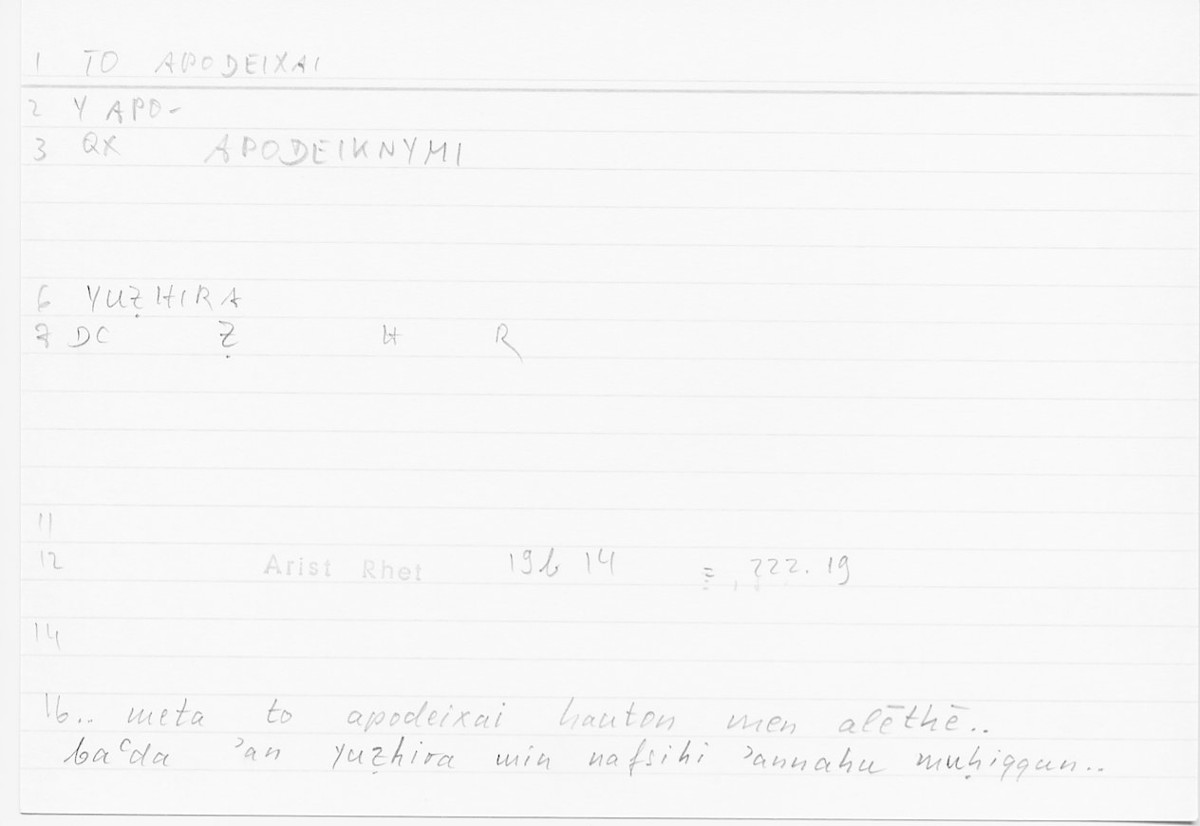 1 TO APODEIXAI
2 Y APO-
3 QX APODEIKNYMI
6 YUẒHIRA
7 DC Ẓ H R
11
12 Arist Rhet 19b 14 = 222.19
14
16.. meta to apodeixai hauton men alēthē..
baʿda ʾan yuẓhira min nafsihi ʾannahu muḥiqqun..